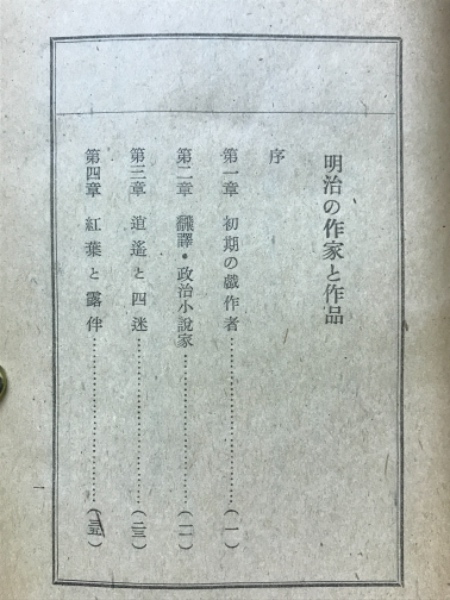 明治の作家と作品
序
第一章 初期の戯作者…………………………(一)
第二章 飜譯・政治小說家…………………………(一一)
第三章 逍遙と四迷…………………………(二三)
第四章 紅葉と露伴…………………………(三五)
一